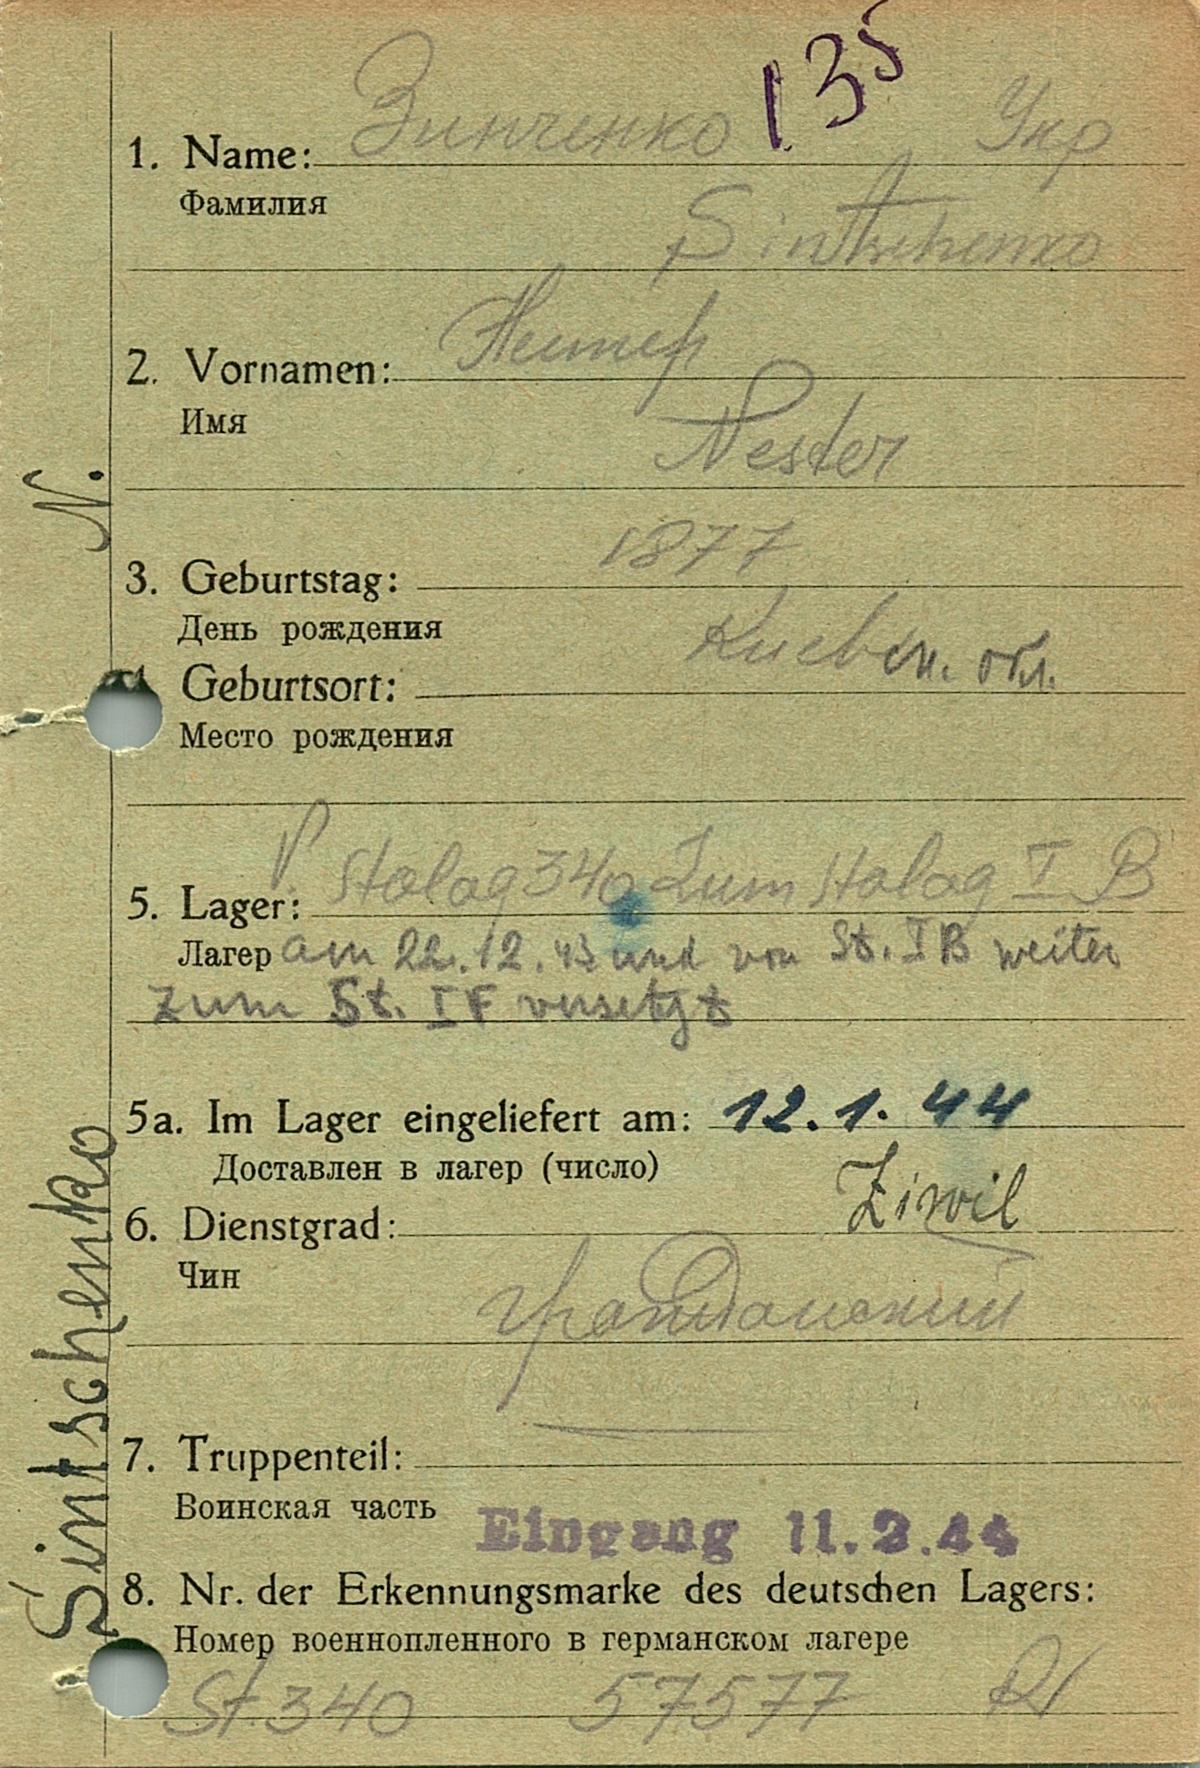 135
Зинченко Укр
1. Name:
Фамилия
Sintschenko
Нестер
2. Vornamen:
Имя
Nester
1877
3. Geburtstag:
День рождения
Киевск. обл.
Geburtsort:
Место рождения
Stalag 340 zum Stalag I B
5. Lager:
Лагер am 22.12.43 und von St. IB weiter
zum St. IF versetzt
5a. Im Lager eingeliefert am: 12.1.44
Доставлен в лагер (число)
Ziwil
6. Dienstgrad:
Чин
гражданский
7. Truppenteil:
Воинская часть
Eingang 11.2.44
8. Nr. der Erkennungsmarke des deutschen Lagers:
Номер военнопленного в германском лагере
St. 340 57577
Sintschenko N.